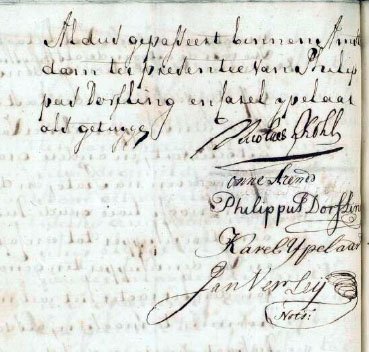 Aldus gepasseert binnen Amster
dam ter presentie van Philip
pus Dorfling en Carel ypelaar
als getuyge
Nicolees
Philippus Dorfling
Karel Ypelaar
Jan Verleij
Notris